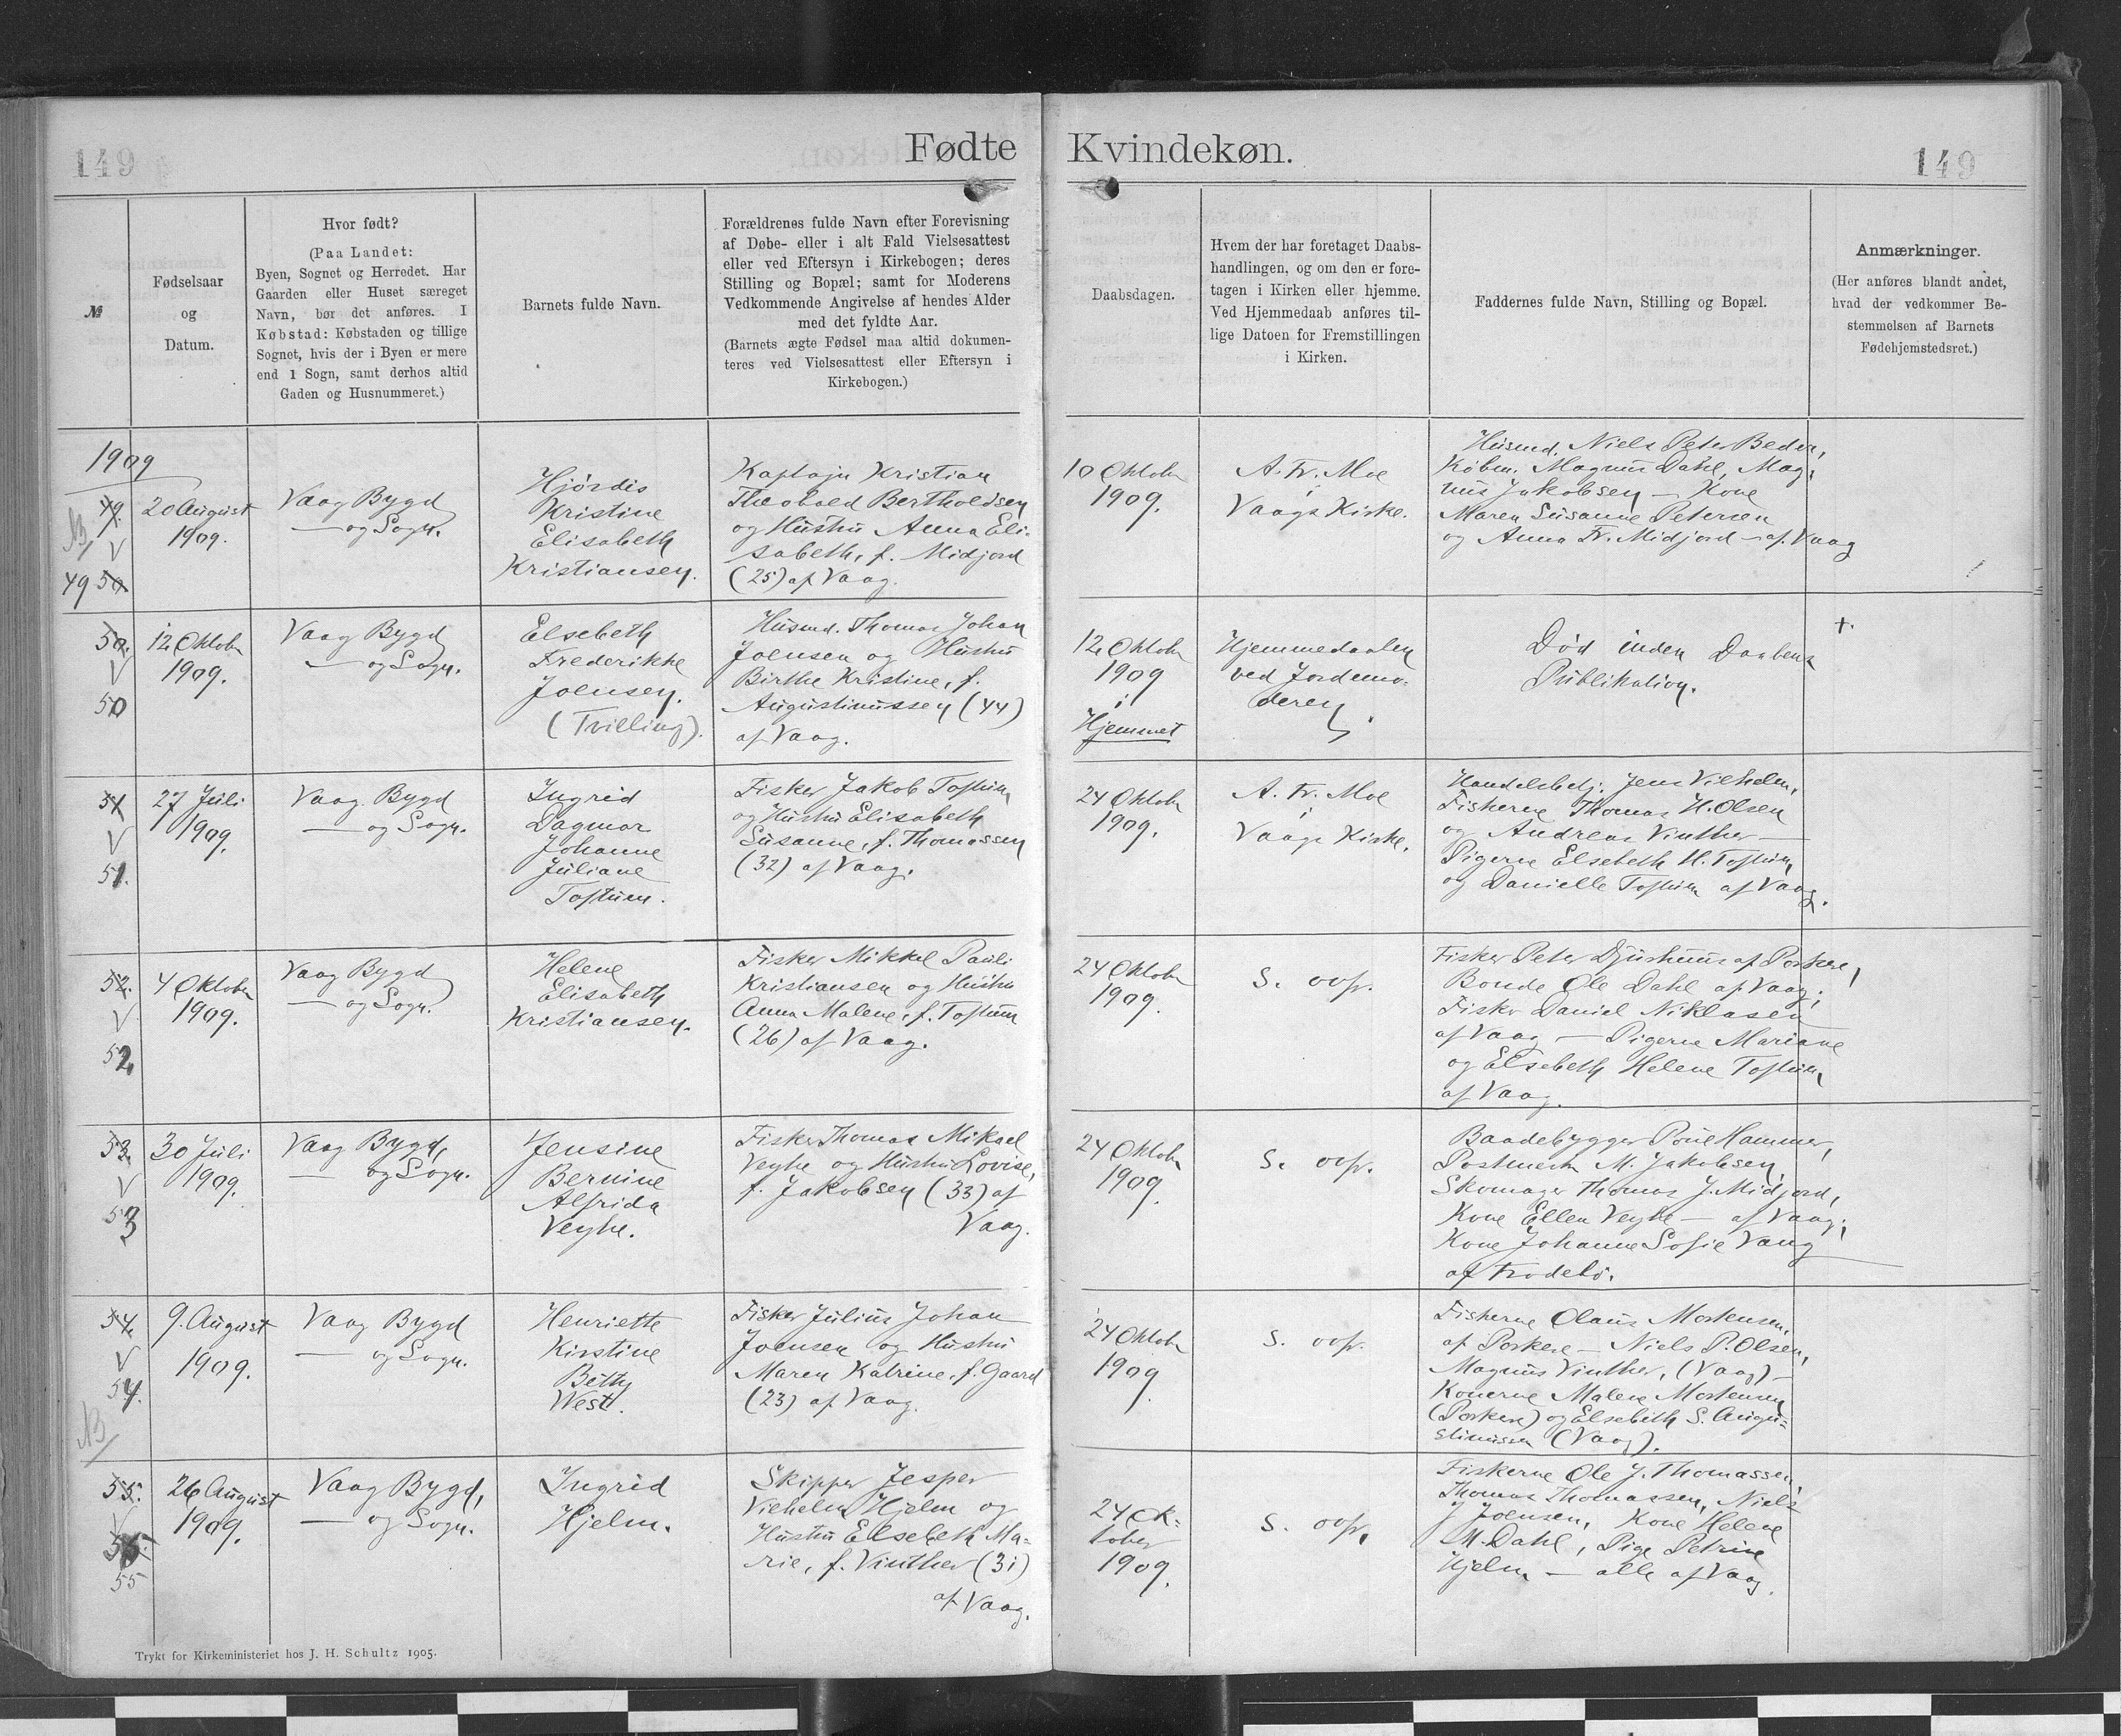 149
Fødte Kvindekøn.
149
№
Fødselsaar
og
Datum.
Hvor født?
(Paa Landet:
Byen, Sognet og Herredet. Har
Gaarden eller Huset særeget
Navn, bør det anføres. I
Købstad: Købstaden og tillige
Sognet, hvis der i Byen er mere
end 1 Sogn, samt derhos altid
Gaden og Husnummeret.)
Barnets fulde Navn.
Forældrenes fulde Navn efter Forevisning
af Døbe- eller i alt Fald Vielsesattest
eller ved Eftersyn i Kirkebogen; deres
Stilling og Bopæl; samt for Moderens
Vedkommende Angivelse af hendes Alder
med det fyldte Aar.
(Barnets ægte Fødsel maa altid dokumen-
teres ved Vielsesattest eller Eftersyn i
Kirkebogen.)
Daabsdagen.
Hvem der har foretaget Daabs-
handlingen, og om den er fore-
tagen i Kirken eller hjemme.
Ved Hjemmedaab anføres til-
lige Datoen for Fremstillingen
i Kirken.
Faddernes fulde Navn, Stilling og Bopæl.
Anmærkninger.
(Her anføres blandt andet,
hvad der vedkommer Be-
stemmelsen af Barnets
Fødehjemstedsret.)
1909
49.
V
49 50
20 August
1909.
Vaag Bygd
— og Sogn.
Hjördis
Kristine
Elisabeth
Kristiansen.
Kaptajn Kristian
Theobald Bertholdsen
og Hustru Anna Eli-
sabeth, f. Midjord
(25) af Vaag.
10 Oktober
1909.
A. Fr. Moe
i
Vaags Kirke.
Husmd. Niels Peter Beder,
Købm. Magnus Dahl, Mag-
nus Jakobsen — Kone
Maren Susanne Petersen
og Anna Fr. Midjord — af Vaag
50.
V
50
12 Oktober
1909.
Vaag Bygd
— og Sogn.
Elsebeth
Frederikke
Joensen.
(Tvilling).
Husmd. Thomas Johan
Joensen og Hustru
Birthe Kristine, f.
Augustinussen (44)
af Vaag.
12 Oktober
1909
i
Hjemmet
Hjemmedaaben
ved Jordemo-
deren
Død inden Daabens
Publikation.
+.
51
V
51.
27 Juli
1909.
Vaag Bygd
— og Sogn.
Ingrid
Dagmar
Johanne
Juliane
Toftum.
Fisker Jakob Toftum
og Hustru Elisabeth
Susanne, f. Thomassen
(32) af Vaag.
24 Oktober
1909.
A. Fr. Moe
i
Vaags Kirke.
Handelsbetj. Jens Vilhelm,
Fiskerne Thomas H. Olsen
og Andreas Vinther —
Pigerne Elsebeth H. Toftum
og Danielle Toftum af Vaag.
52.
V
52.
4 Oktober
1909.
Vaag Bygd
— og Sogn.
Helene
Elisabeth
Kristiansen.
Fisker Mikkel Pauli
Kristiansen og Hustru
Anna Malene, f. Toftum
(26) af Vaag.
24 Oktober
1909.
S. ovf.
Fisker Peter Djurhuus af Porkere,
Bonde Ole Dahl af Vaag;
Fisker Daniel Niklasen
af Vaag — Pigerne Mariane
og Elsebeth Helene Toftum
af Vaag.
53.
V
53
30 Juli
1909.
Vaag Bygd,
— og Sogn.
Jensine
Bernine
Alfrida
Veyhe.
Fisker Thomas Mikael
Veyhe og Hustru Lovise,
f. Jakobsen (33) af
Vaag.
24 Oktober
1909.
S. ovf.
Baadebygger Poul Hammer,
Postmester M. Jakobsen,
Skomager Thomas J. Midjord,
Kone Ellen Veyhe — af Vaag;
Kone Johanne Sofie Vang
af Frodebø.
54.
V
54.
9. August
1909.
Vaag Bygd
— og Sogn.
Henriette
Kirstine
Betty
West.
Fisker Julius Johan
Joensen og Hustru
Maren Katrine, f. Gaard
(23) af Vaag.
24 Oktober
1909.
S. ovf.
Fiskerne Olaus Mortensen,
af Porkere — Niels P. Olsen,
Magnus Vinther, (Vaag) —
Konerne Malene Mortensen
(Porkere) og Elsebeth S. Augu-
stinussen (Vaag).
55.
V
55
26 August
1909.
Vaag Bygd,
— og Sogn.
Ingrid
Hjelm.
Skipper Jesper
Vilhelm Hjelm og
Hustru Elsebeth Ma-
rie, f. Vinther (31)
af Vaag.
24 Ok-
tober
1909.
S. ovf.
Fiskerne Ole J. Thomassen,
Thomas Thomassen, Niels
J Joensen, Kone Helene
M. Dahl, Pige Petrine
Hjelm — alle af Vaag.
Trykt for Kirkeministeriet hos J. H. Schultz 1905.